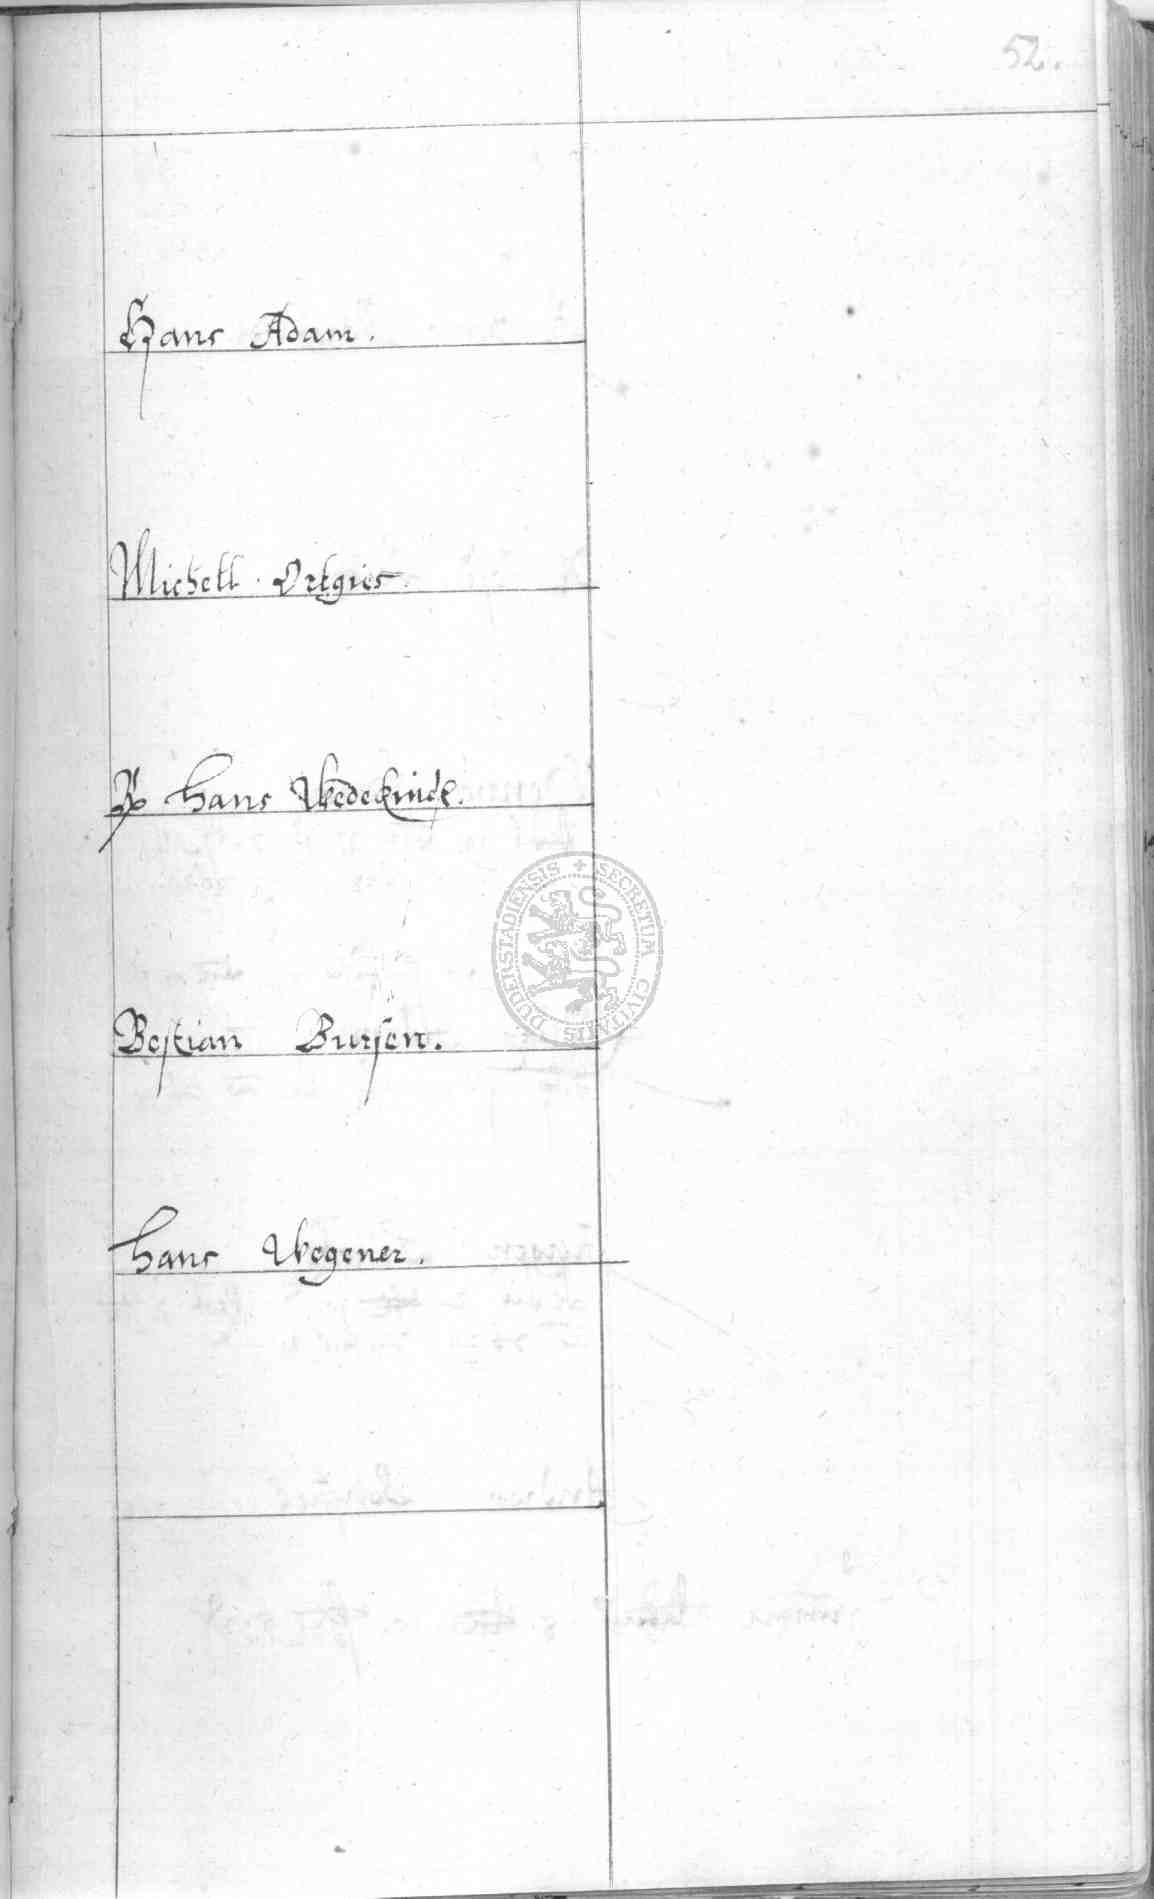 52.
Hans Adam.
Michell Ortgies.
Hans Wedekindt.
Bestian Bursen.
Hans Wegener.
DUDERSTADIENSIS + SECRETUM CIVITATIS